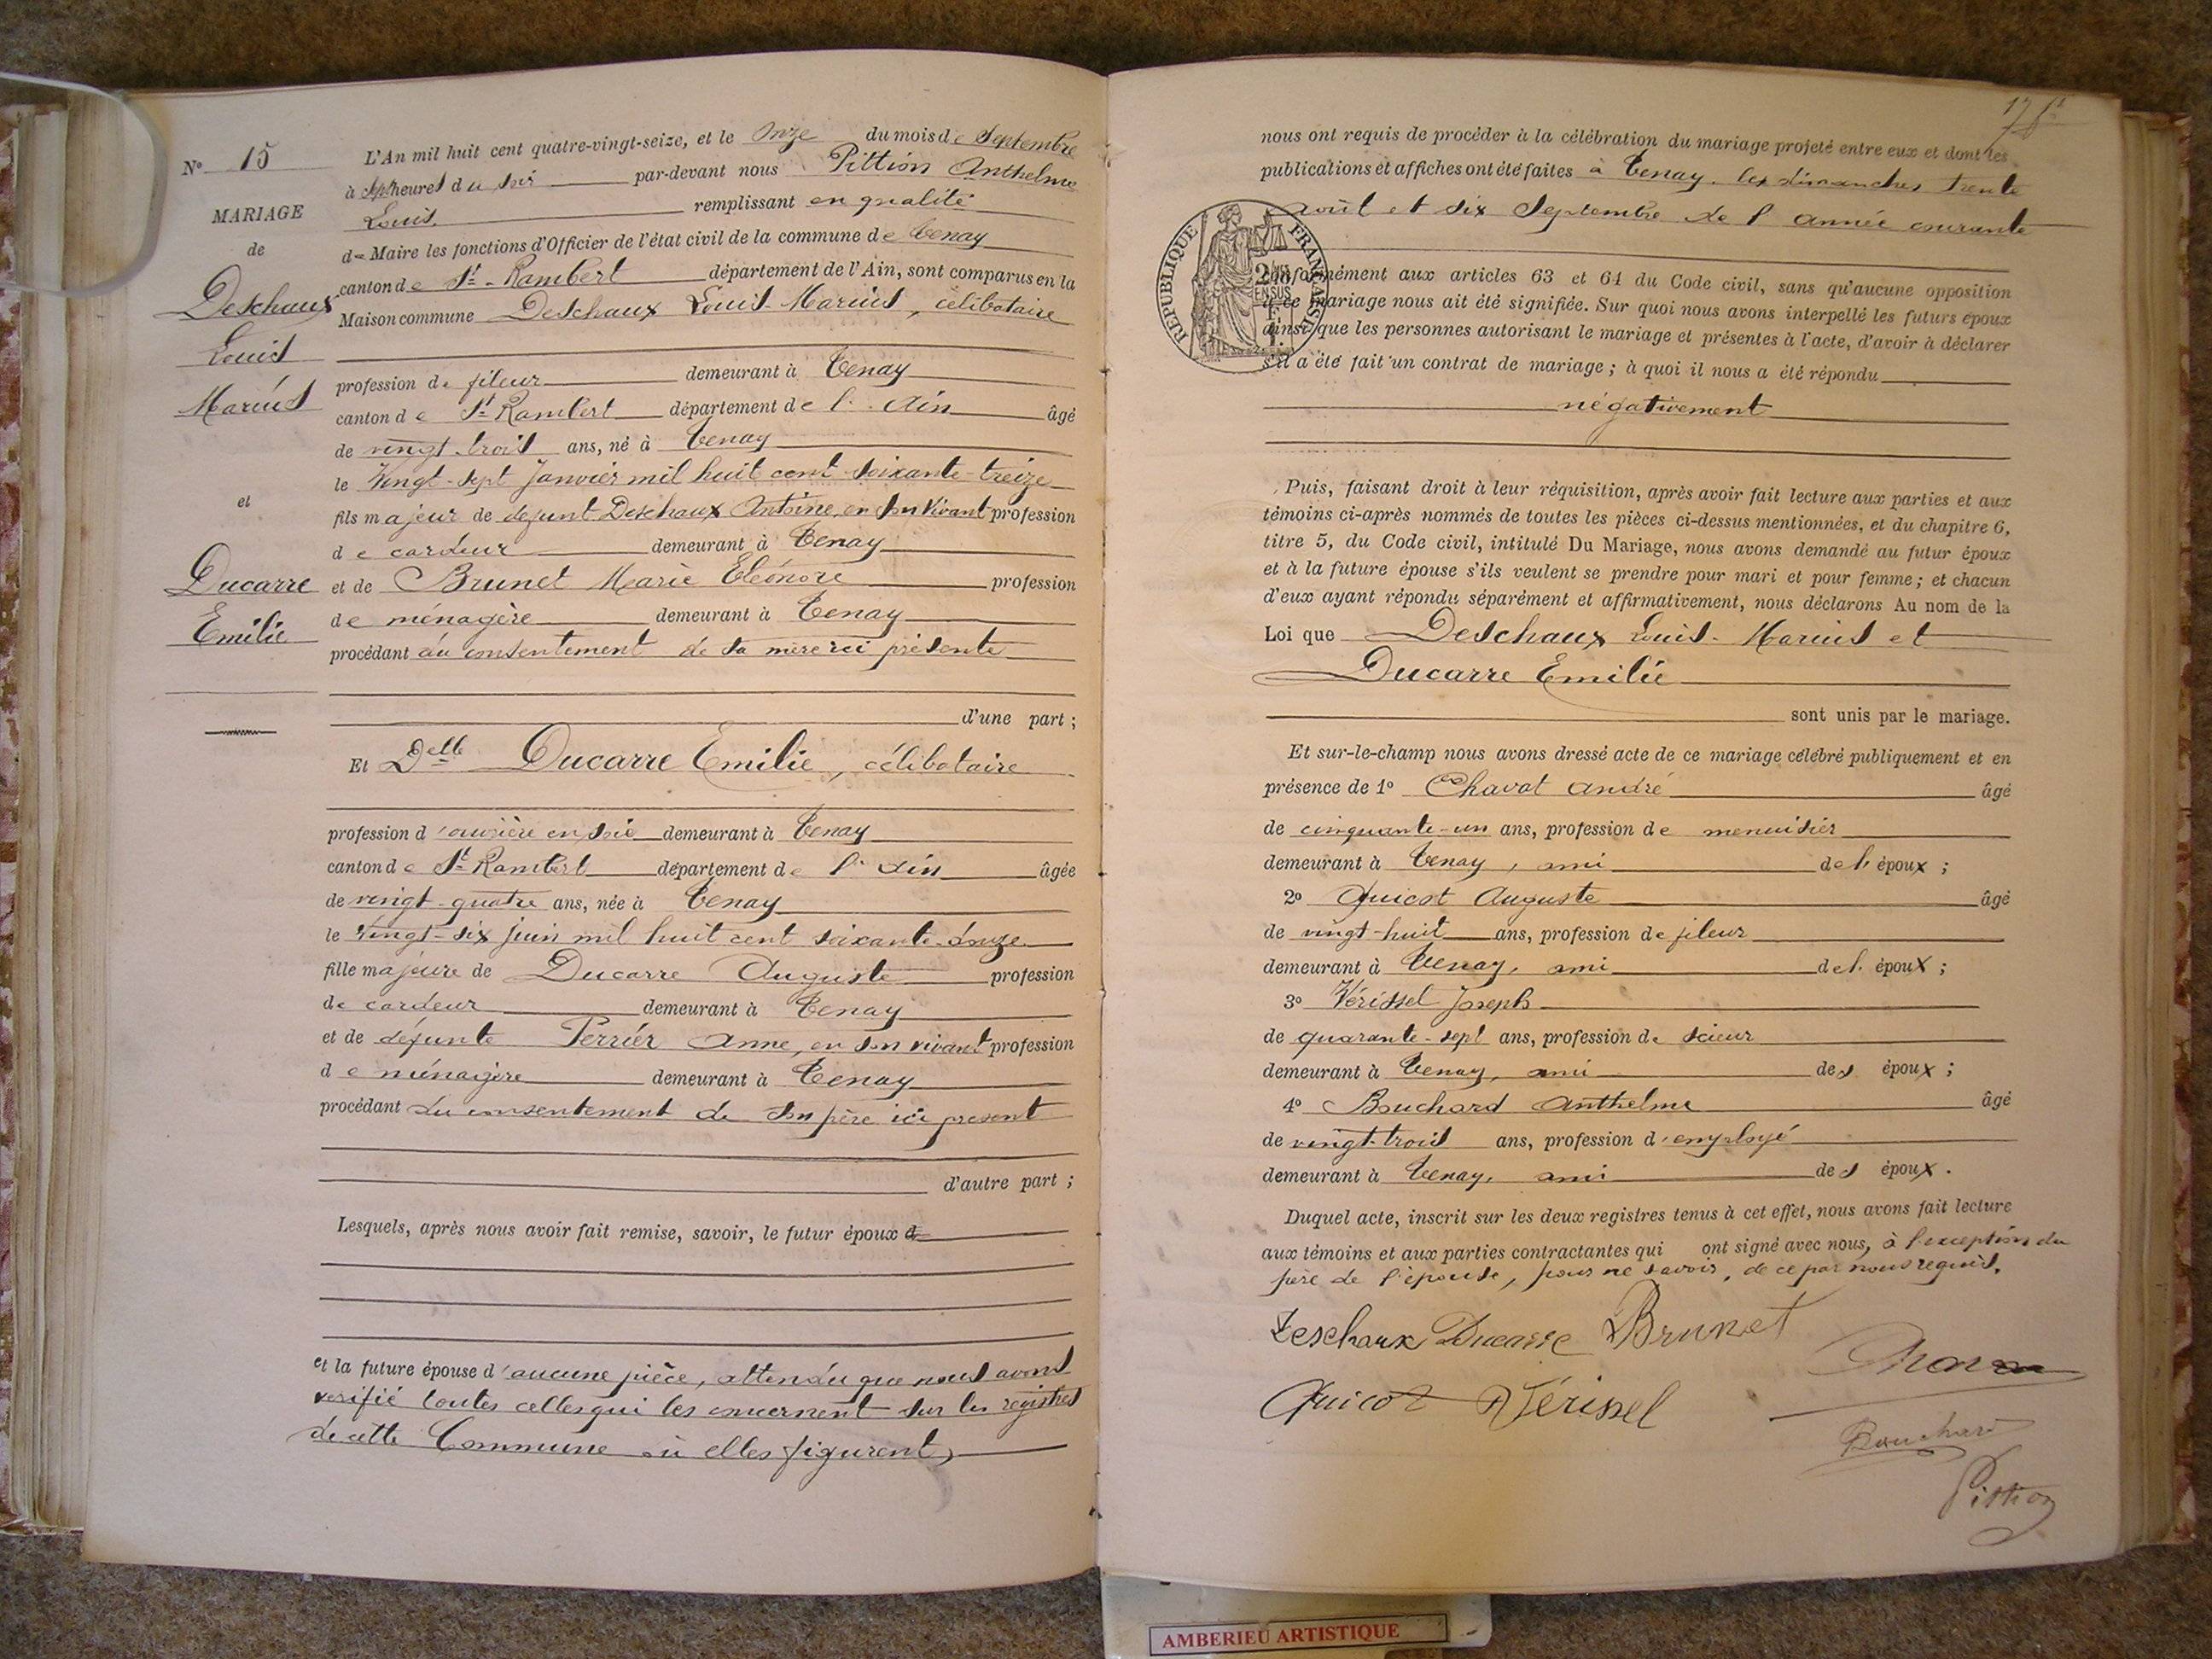 N° 15
MARIAGE
de
Deschaux
Louis
Marius
et
Ducarre
Emilie
L'An mil huit cent quatre-vingt-seize, et le onze du mois de Septembre
à sept heures du soir par-devant nous Pittion Anthelme
Louis, remplissant en qualité
de Maire les fonctions d'Officier de l'état civil de la commune de Tenay
canton de St-Rambert département de l'Ain, sont comparus en la
Maison commune Deschaux Louis-Marius, célibataire
profession de fileur demeurant à Tenay
canton de St Rambert département de l'Ain âgé
de vingt-trois ans, né à Tenay
le Vingt-sept Janvier mil huit cent soixante-treize
fils majeur de défunt Deschaux Antoine, en son vivant profession
de cardeur demeurant à Tenay
et de Brunet Marie Eléonore profession
de ménagère demeurant à Tenay
procédant du consentement de sa mère ici présente
d'une part ;
Et Delle Ducarre Emilie, célibataire
profession d'ouvrière en soie demeurant à Tenay
canton de St-Rambert département de l'Ain âgée
de vingt-quatre ans, née à Tenay
le Vingt-six juin mil huit cent soixante-douze
fille majeure de Ducarre Auguste profession
de cardeur demeurant à Tenay
et de défunte Perrier Anne, en son vivant profession
de ménagère demeurant à Tenay
procédant du consentement de son père ici présent
d'autre part ;
Lesquels, après nous avoir fait remise, savoir, le futur époux d
et la future épouse d'aucune pièce, attendu que nous avons
vérifié toutes celles qui les concernent sur les registres
de cette Commune où elles figurent,
nous ont requis de procéder à la célébration du mariage projeté entre eux et dont les
publications et affiches ont été faites à Tenay, les dimanches trente
août et six Septembre de l'année courante
RÉPUBLIQUE FRANÇAISE
conformément aux articles 63 et 64 du Code civil, sans qu'aucune opposition
à ce mariage nous ait été signifiée. Sur quoi nous avons interpellé les futurs époux
ainsi que les personnes autorisant le mariage et présentes à l'acte, d'avoir à déclarer
s'il a été fait un contrat de mariage ; à quoi il nous a été répondu
négativement
Puis, faisant droit à leur réquisition, après avoir fait lecture aux parties et aux
témoins ci-après nommés de toutes les pièces ci-dessus mentionnées, et du chapitre 6,
titre 5, du Code civil, intitulé Du Mariage, nous avons demandé au futur époux
et à la future épouse s'ils veulent se prendre pour mari et pour femme ; et chacun
d'eux ayant répondu séparément et affirmativement, nous déclarons Au nom de la
Loi que Deschaux Louis-Marius et
Ducarre Emilie
sont unis par le mariage.
Et sur-le-champ nous avons dressé acte de ce mariage célébré publiquement et en
présence de 1° Chavat André âgé
de cinquante-un ans, profession de menuisier
demeurant à Tenay, ami de l'époux ;
2° Quicot Auguste âgé
de vingt-huit ans, profession de fileur
demeurant à Tenay, ami de l'époux ;
3° Vérissel Joseph
de quarante-sept ans, profession de scieur
demeurant à Tenay, ami des époux ;
4° Bouchard Anthelme âgé
de vingt-trois ans, profession d'employé
demeurant à Tenay, ami des époux.
Duquel acte, inscrit sur les deux registres tenus à cet effet, nous avons fait lecture
aux témoins et aux parties contractantes qui ont signé avec nous, à l'exception du
père de l'épouse, pour ne savoir, de ce par nous requis.
Deschaux Ducarre Brunet
Quicot Vérissel
Bouchard
Pittion
AMBERIEU ARTISTIQUE